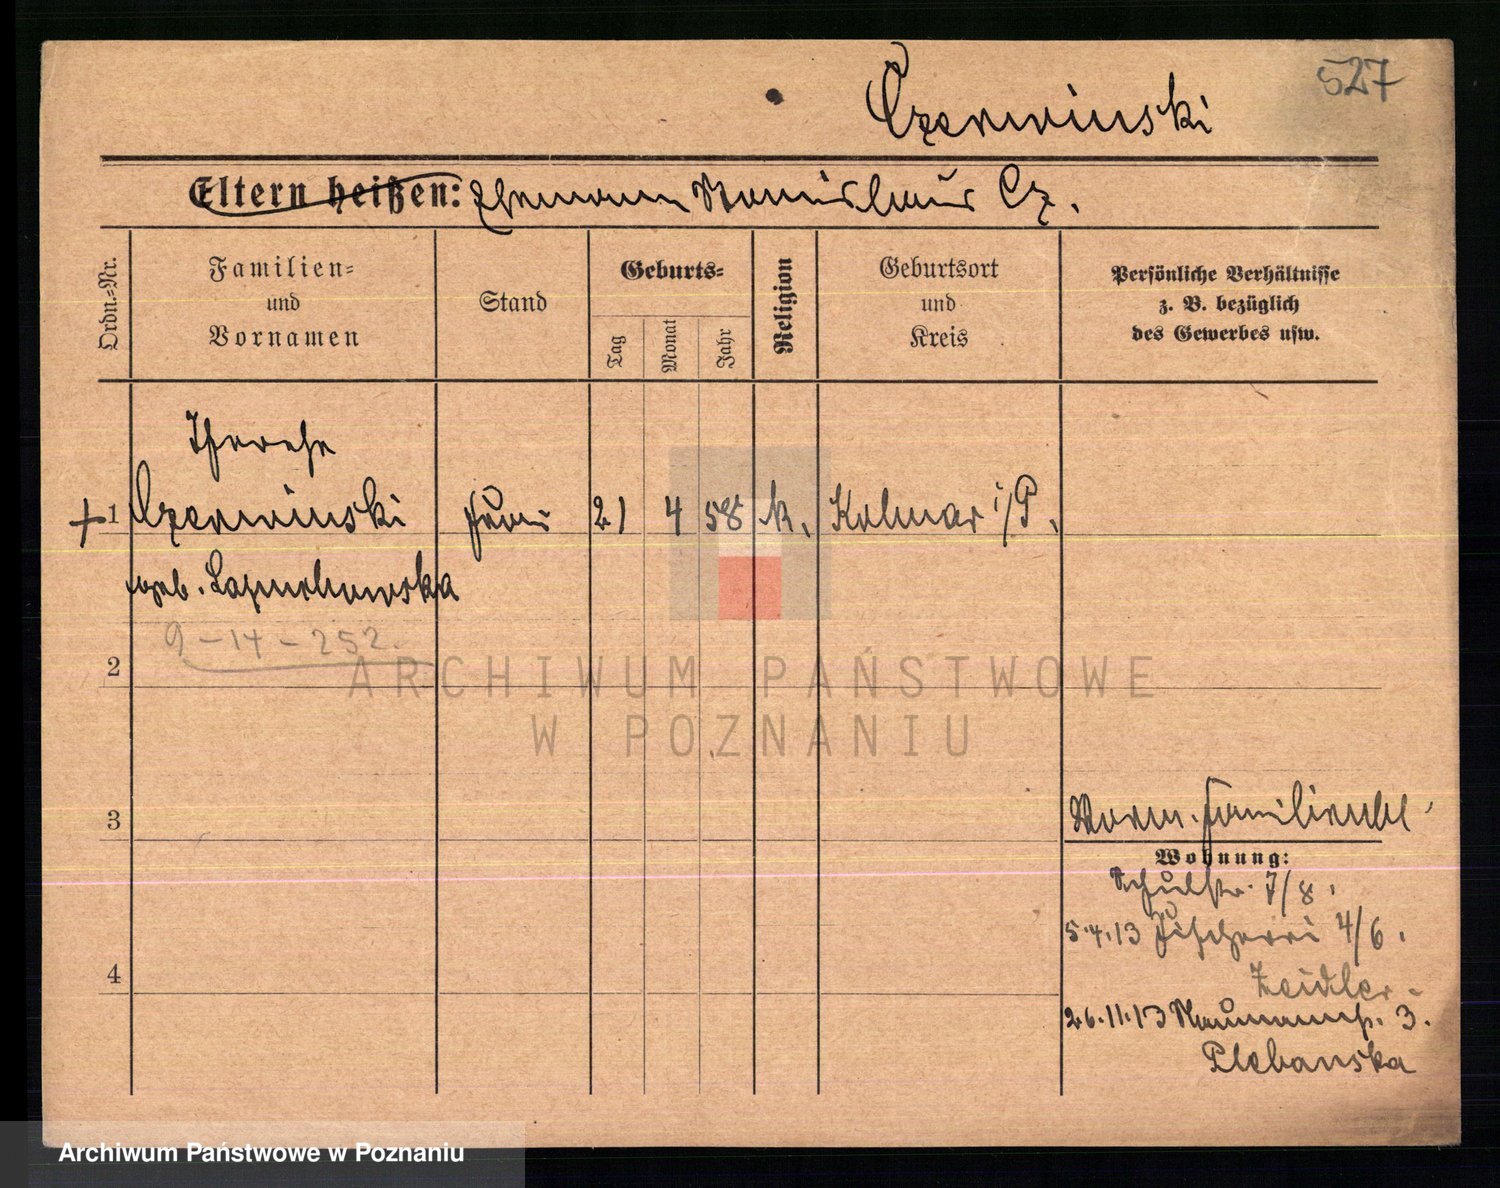 527
Czerwinski
Eltern heißen: Ehemann Stanislaus Cz.
Ordn.=Nr.
Familien=
und
Vornamen
Stand
Geburts=
Tag
Monat
Jahr
Religion
Geburtsort
und
Kreis
Persönliche Verhältnisse
z. B. bezüglich
des Gewerbes usw.
Therese
+ 1 Czerwinski Frau 21 4 58 k. Kolmar i/P.
geb.
9-14-252.
2
ARCHIWUM PAŃSTWOWE
W POZNANIU
3
Wohnung:
Schulstr. 7/8.
5.4.13 Fischerei 4/6.
4
Zeidler.
26.11.13 Naumannstr. 3.
Plebanska
Archiwum Państwowe w Poznaniu